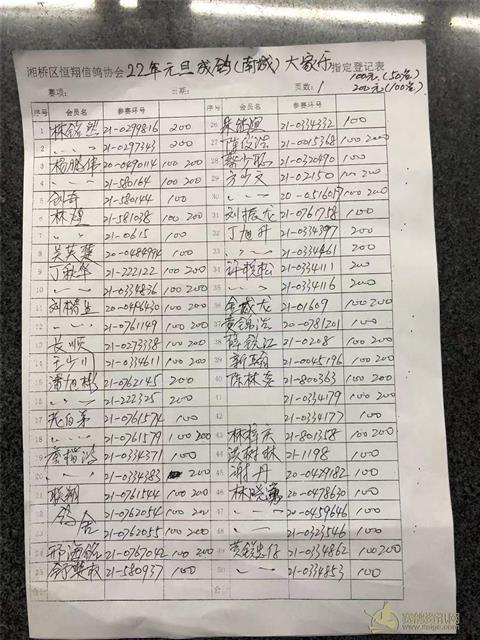 湘桥区恒翔信鸽协会22年元旦成鸽(南城)大家乐指定登记表
100元(50名)
赛项: 日期: 页数:1 200元(100名)
序号 会员名 参赛环号 序号 会员名 参赛环号
1 21-0299816 200 26 21-0334332 100
2 〃 〃 21-0297343 200 27 21-0015368 100 200
3 杨鹏伟 20-0490114 100 200 28 蔡少聪 21-0320490 100
4 〃 〃 21-580164 200 29 方少文 21-02150 100 200
5 剑奇 21-580144 100 30 〃 20-0516017 100 200
6 林旭 21-581038 100 200 31 刘振龙 21-0761758 100
7 〃 21-0615 100 32 丁旭升 21-0334397 200
8 吴英楚 20-0484994 100 33 〃 〃 21-0334461 200
9 21-222122 100 200 34 许锐松 21-0334111 200
10 〃 〃 21-0334836 100 200 35 〃 21-0334116 200
11 刘楷生 20-0496430 100 200 36 金城龙 21-01609 100 200
12 〃 〃 21-0761149 100 200 37 20-0781201 100
13 长顺 21-0273338 100 200 38 薛锐江 21-0208 100 200
14 王少川 21-0334611 100 200 39 新翰 21-0045196 100 200
15 潘旭彬 21-0762145 200 40 陈林泰 21-800363 100 200
16 〃 〃 21-222325 200 41 21-0334179 100 200
17 21-0761574 100 42 21-0334177 100
18 〃 〃 21-0761579 100 200 43 林梓天 21-801358 100 200
19 21-0334371 100 44 洪树林 21-1198 100
20 〃 21-0334383 200 45 谢丹 20-0429182 100
21 联翔 21-0761544 100 200 46 20-0478630 100
22 鸽舍 21-0762054 100 200 47 〃 〃 20-0459646 100
23 21-0762055 100 200 48 〃 〃 21-0323546 100
24 邢海铭 21-0767042 100 200 49 21-0334862 100 200
25 21-580937 100 50 21-0334853 100
合计 合计
赛鸽资讯网